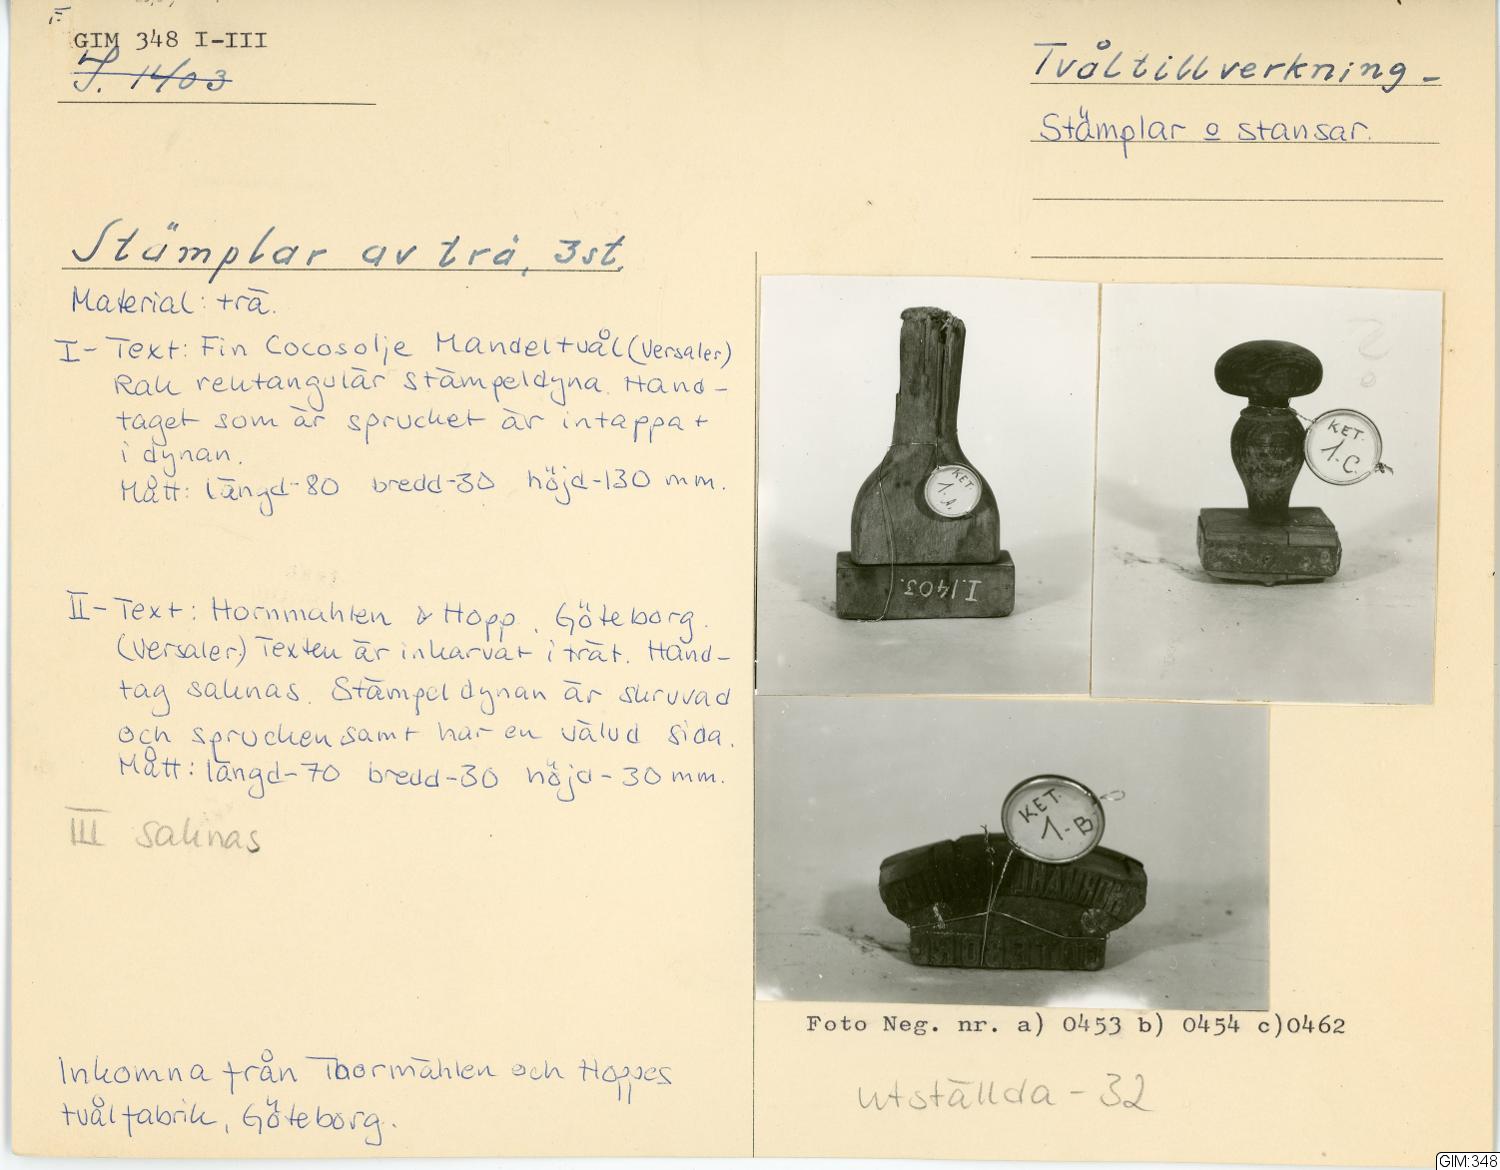 GIM 348 I-III
I. 1403
Tvåltillverkning -
Stämplar o stansar.
Stämplar av trä, 3st.
Material: trä.
I- Text: Fin Cocosolje Mandeltvål (Versaler)
Rak rektangulär stämpeldyna. Hand-
taget som är sprucket är intappat
i dynan.
Mått: längd-80 bredd-30 höjd-130 mm.
II- Text: Hornmahlen & Hopp. Göteborg.
(Versaler) Texten är inkarvat i trät. Hand-
tag saknas. Stämpeldynan är skruvad
och sprucken samt har en välvd sida.
Mått: längd-70 bredd-30 höjd-30 mm.
III saknas
Inkomna från Toormählen och Hoppes
tvålfabrik, Göteborg.
KET.
1.A.
I.1403.
KET.
1.C.
KET.
1-B
Foto Neg. nr. a) 0453 b) 0454 c)0462
utställda - 32
GIM:348